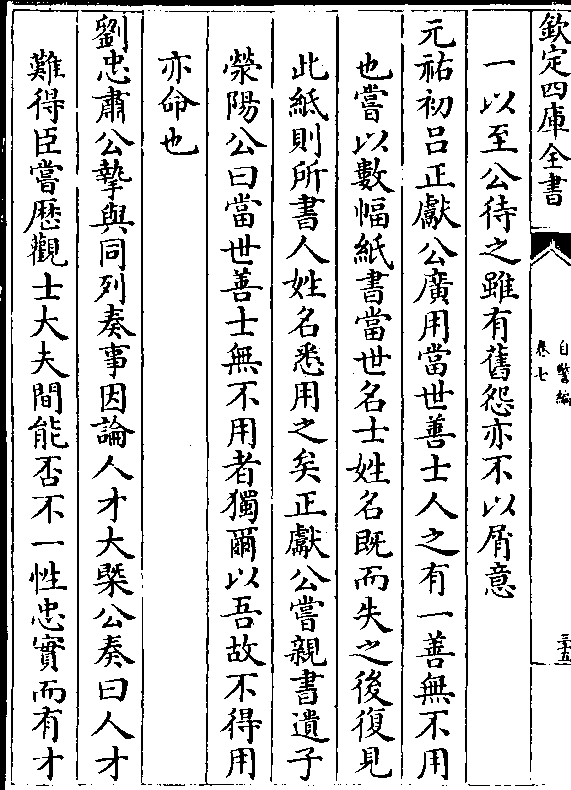 欽定四庫全書
自警編
卷七
三五
一以至公待之雖有舊怨亦不以屑意
元祐初吕正獻公廣用當世善士人之有一善無不用
也嘗以數幅紙書當世名士姓名既而失之後復見
此紙則所書人姓名悉用之矣正獻公嘗親書遺子
滎陽公曰當世善士無不用者獨爾以吾故不得用
亦命也
劉忠肅公摯與同列奏事因論人才大槩公奏曰人才
難得臣嘗歴觀士大夫間能否不一性忠實而有才